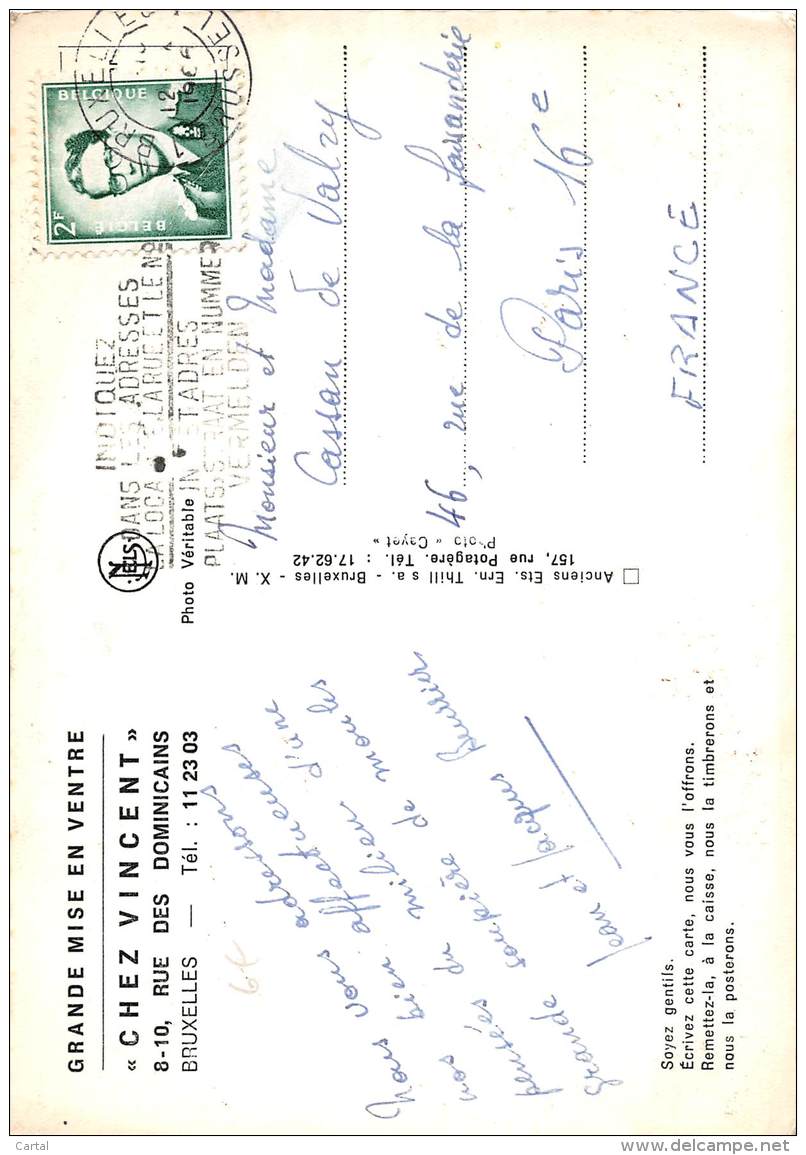 GRANDE MISE EN VENTRE
« CHEZ VINCENT »
8-10, RUE DES DOMINICAINS
BRUXELLES — Tél. : 11 23 03
6€
Nous vous adressons
nos bien affectueuses
pensées du milieu d'une
grande soupière de moules
Jean et Jacques
Soyez gentils.
Écrivez cette carte, nous vous l'offrons.
Remettez-la, à la caisse, nous la timbrerons et
nous la posterons.
NELS
Photo Véritable
Anciens Ets. Ern. Thill s a. - Bruxelles - X. M.
157, rue Potagère. Tél. : 17.62.42
Photo « Gayet »
INDIQUEZ
DANS LES ADRESSES
LA LOCA LA RUE ET LE NO
IN ET ADRES
PLAATS STRAAT EN NUMMER
VERMELDEN
BELGIQUE
BELGIË
2F
BRUXELLE
BRUSSEL
12
Monsieur et Madame
Cassan de Valry
46, rue de la Faisanderie
Paris 16e
FRANCE
Cartal
www.delcampe.net